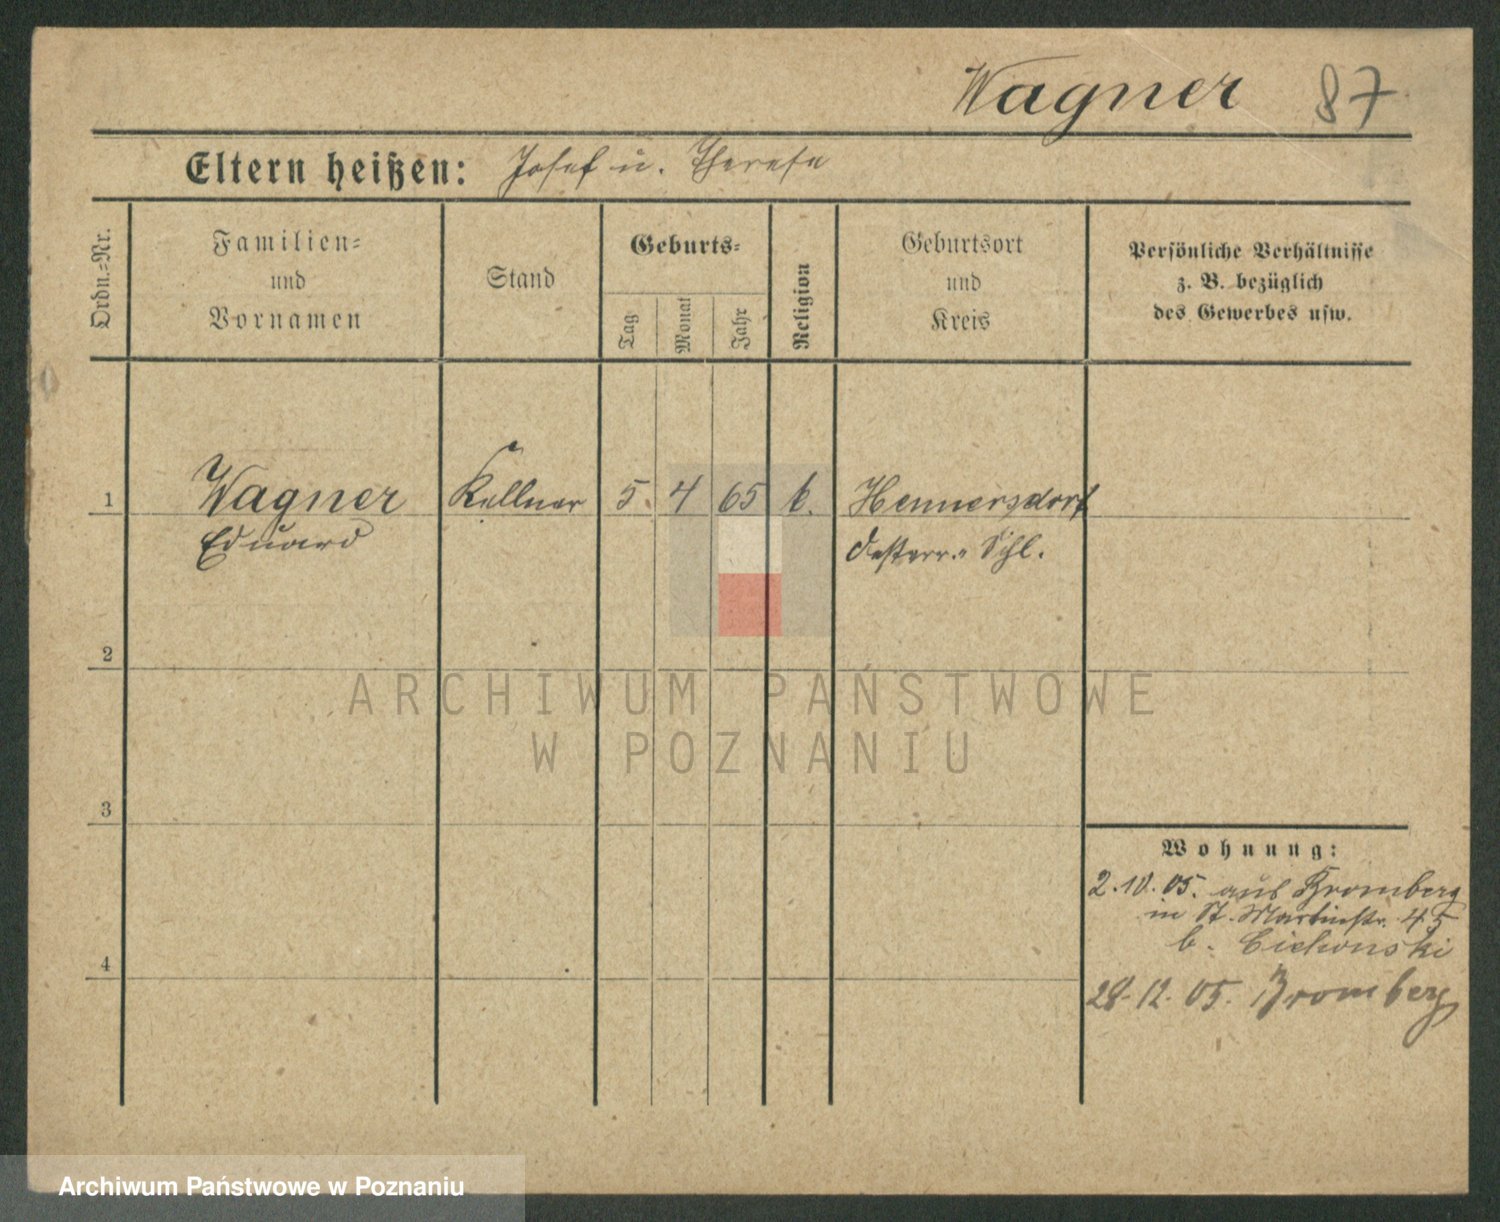 Wagner 87
Eltern heißen: Josef u. Therese
Ordn.-Nr.
Familien-
und
Vornamen
Stand
Geburts-
Tag
Monat
Jahr
Religion
Geburtsort
und
Kreis
Persönliche Verhältnisse
z. B. bezüglich
des Gewerbes usw.
1 Wagner Kellner 5. 4 65 k. Hennersdorf
Eduard Oesterr.-Schl.
2
3
4
Wohnung:
2.10.05. aus Bromberg
in St. Martinstr. 45
b. Cichonski
28.12.05. Bromberg
ARCHIWUM PAŃSTWOWE
W POZNANIU
Archiwum Państwowe w Poznaniu